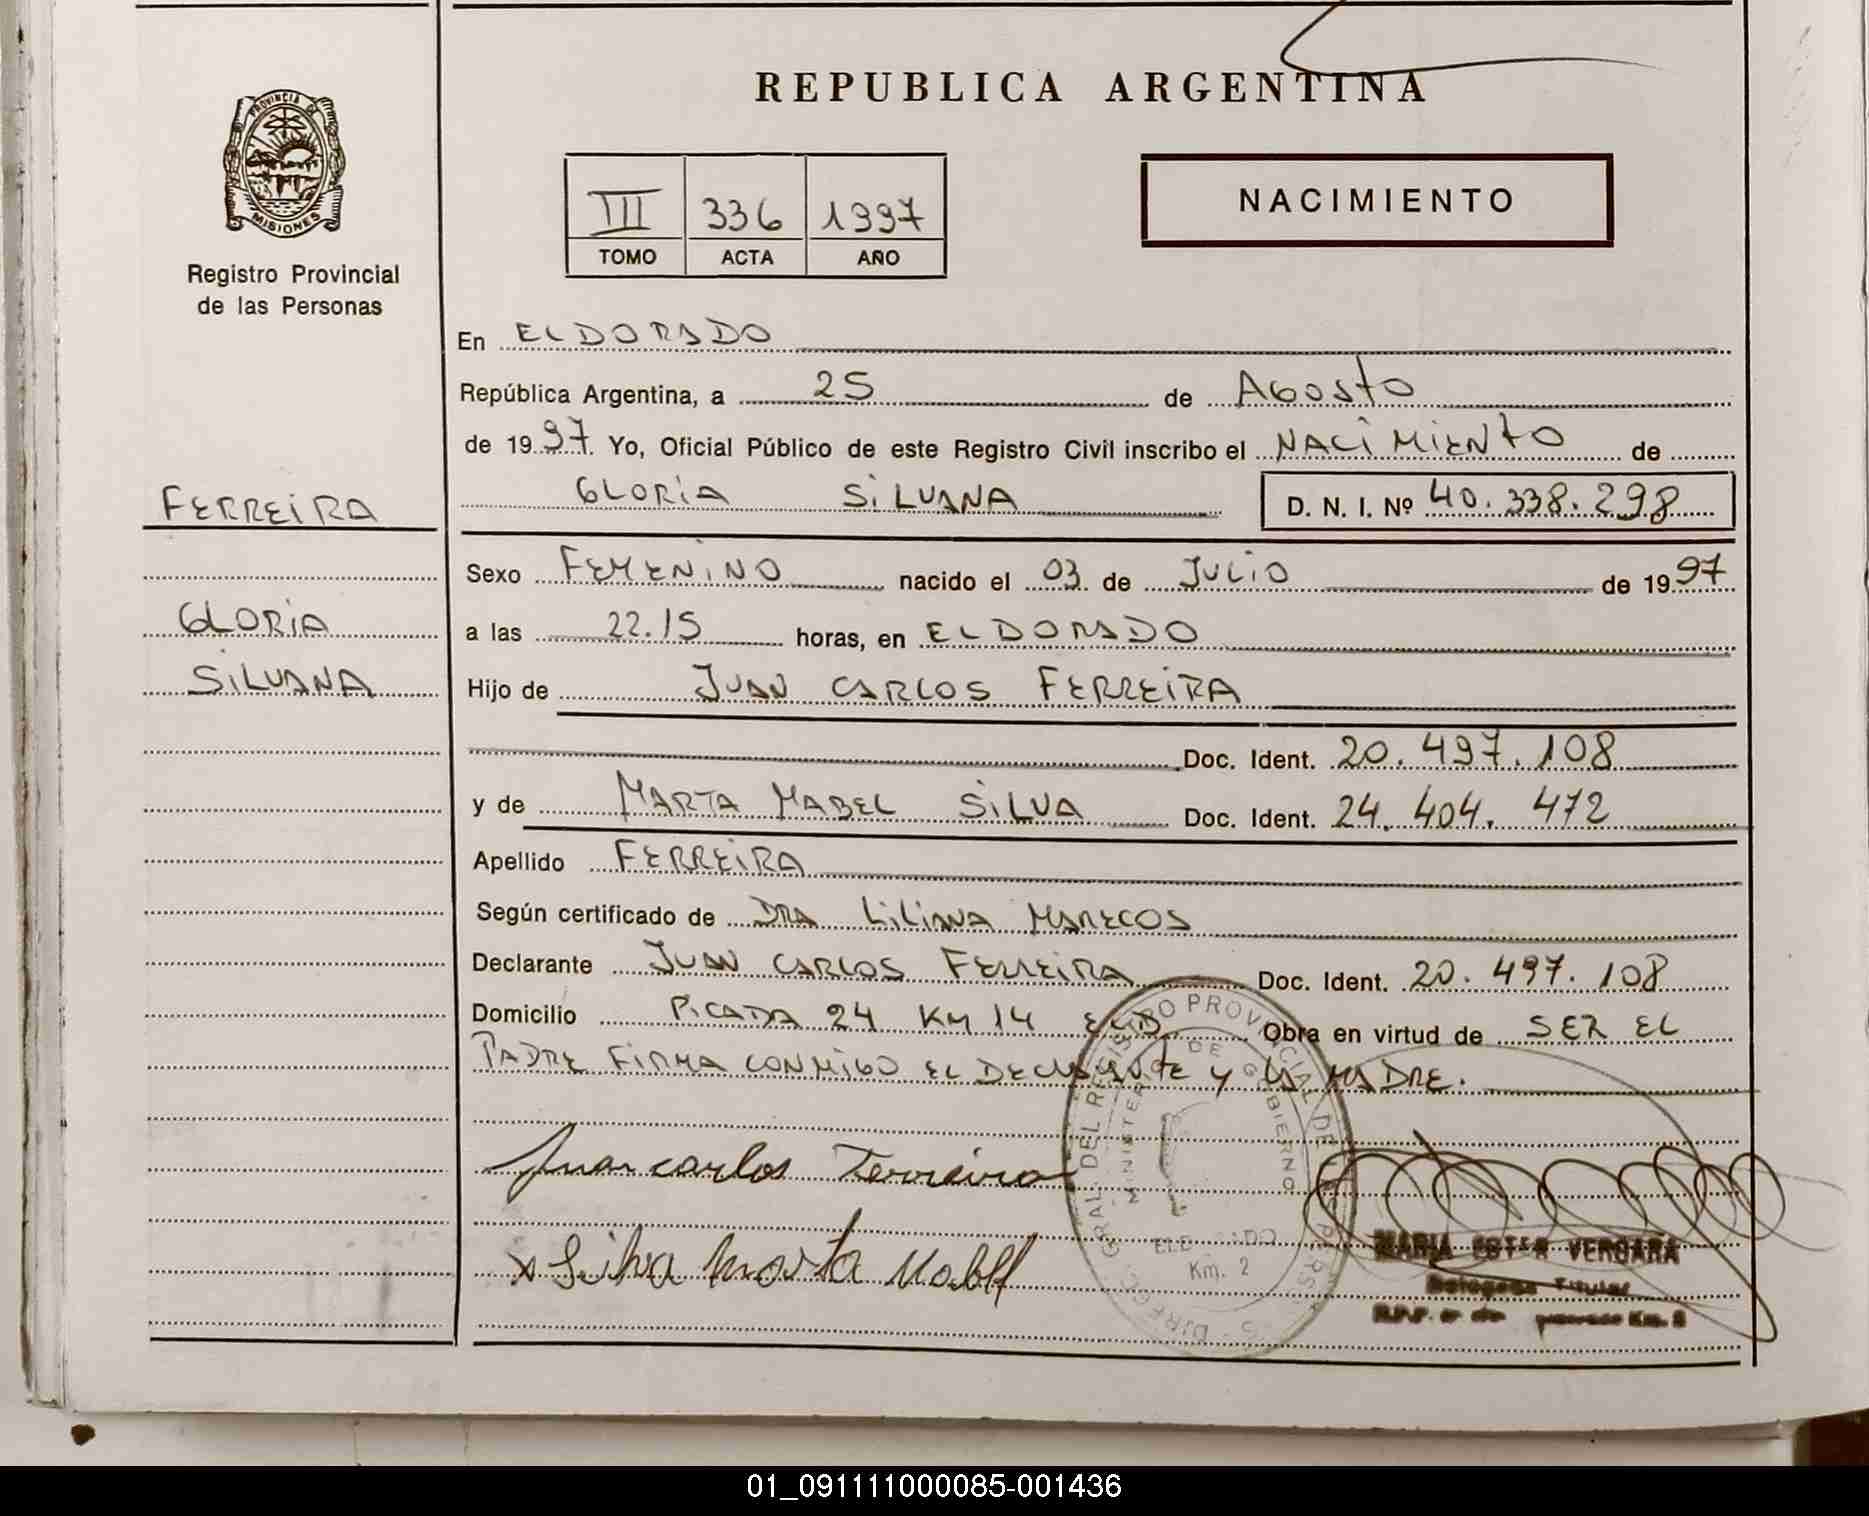 REPUBLICA ARGENTINA
PROVINCIA DE
MISIONES
Registro Provincial
de las Personas
III 336 1997
TOMO ACTA AÑO
NACIMIENTO
En ELDORADO
República Argentina, a 25 de AGOSTO
de 1997 Yo, Oficial Público de este Registro Civil inscribo el NACIMIENTO de
GLORIA SILVANA D. N. I. Nº 40.338.298
FERREIRA
GLORIA
SILVANA
Sexo FEMENINO nacido el 03 de JULIO de 1997
a las 22.15 horas, en ELDORADO
Hijo de JUAN CARLOS FERREIRA
Doc. Ident. 20.497.108
y de MARTA MABEL SILVA Doc. Ident. 24.404.472
Apellido FERREIRA
Según certificado de DRA LILIANA MARECOS
Declarante JUAN CARLOS FERREIRA Doc. Ident. 20.497.108
Domicilio PICADA 24 KM 14 ELD Obra en virtud de SER EL
PADRE FIRMA CONMIGO EL DECLARANTE Y LA MADRE.
Juan carlos Ferreira
x Silva Marta Mabel
DIREC. GRAL. DEL REGISTRO PROVINCIAL DE LAS PERSONAS
MINISTERIO DE GOBIERNO
ELDORADO
Km. 2
MARIA ESTER VERGARA
Delegada Titular
Km. 2
01_091111000085-001436